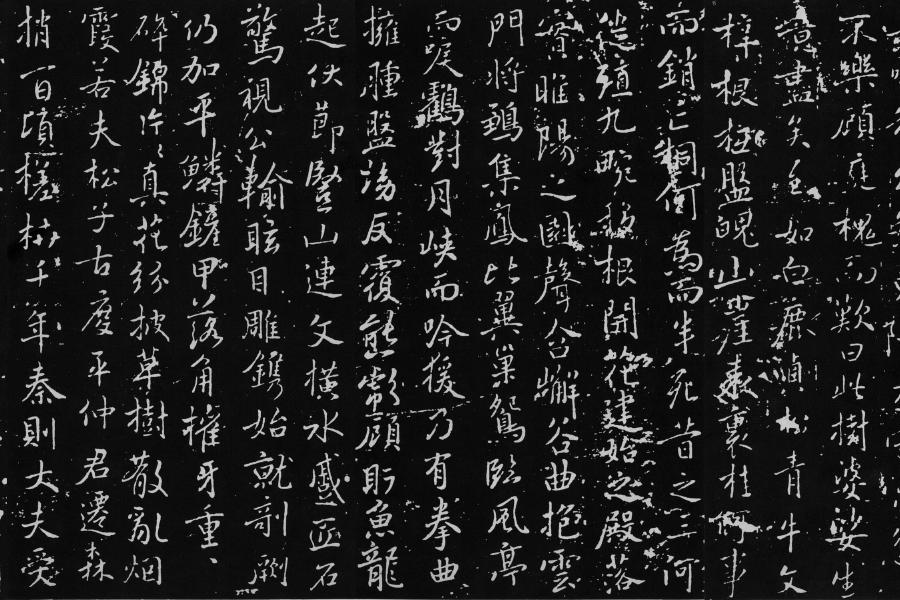 不樂顧庭槐而歎曰此樹婆娑生
意盡矣至如白鹿貞松青牛文
梓根柢盤魄山崖表裏桂何事
而銷亡桐何為而半死昔之三河
徙殖九畹移根開花建始之殿落
實睢陽之園聲含嶰谷曲抱雲
門將鵄集鳳比翼巢鴛臨風亭
而唳鶴對月峽而吟猨乃有拳曲
擁腫盤坳反覆熊彪顧盻魚龍
起伏節豎山連文橫水蹙匠石
驚視公輸眩目雕鐫始就剞劂
仍加平鱗鏟甲落角摧牙重〻
碎錦片〻真花紛披草樹散亂烟
霞若夫松子古度平仲君遷森
梢百頃槎枿千年秦則大夫受